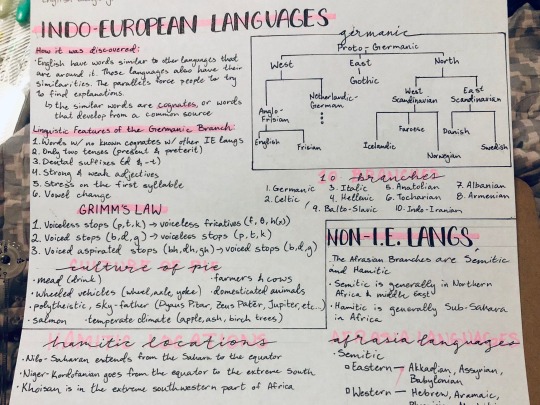 INDO-EUROPEAN LANGUAGES
How it was discovered:
·English have words similar to other languages that
are around it. These languages also have their
similarities. The parallels force people to try
to find explanations.
↳ the similar words are cognates, or words
that develop from a common source
Linguistic Features of the Germanic Branch:
1. Words w/ no known cognates w/ other IE langs
2. Only two tenses (present & preterit)
3. Dental suffixes (d & -t)
4. Strong & weak adjectives
5. Stress on the first syllable
6. Vowel change
GRIMM'S LAW
1. Voiceless stops (p,t,k) → voiceless fricatives (f, θ, h(x))
2. Voiced stops (b,d,g) → voiceless stops (p,t,k)
3. Voiced aspirated stops (bh,dh,gh) → voiced stops (b,d,g)
culture of pie
·mead (drink) ·farmers & cows
·wheeled vehicles (wheel,axle,yoke) ·domesticated animals
·polytheistic, sky-father (Dyaus Pitar, Zeus Pater, Jupiter, etc...)
·salmon ·temperate climate (apple, ash, birch trees)
hamitic locations
·Nilo-Saharan extends from the Saharan to the equator
·Niger-Kordofanian goes from the equator to the extreme South
·Khoisan is in the extreme southwestern part of Africa
germanic
Proto-Germanic
West East North
Gothic
Netherlandic-
German
West
Scandinavian
East
Scandinavian
Anglo-
Frisian
English Frisian
Faroese Danish
Icelandic Swedish
Norwegian
10 branches
1. Germanic 3. Italic 5. Anatolian 7. Albanian
2. Celtic 4. Hellenic 6. Tocharian 8. Armenian
9. Balto-Slavic 10. Indo-Iranian
NON-I.E. LANGS
The Afrasian Branches are Semitic
and Hamitic
·Semitic is generally in Northern
Africa & middle East
·Hamitic is generally Sub-Sahara
in Africa
afrasia languages
·Semitic
Eastern — Akkadian, Assyrian,
Babylonian
Western — Hebrew, Aramaic,